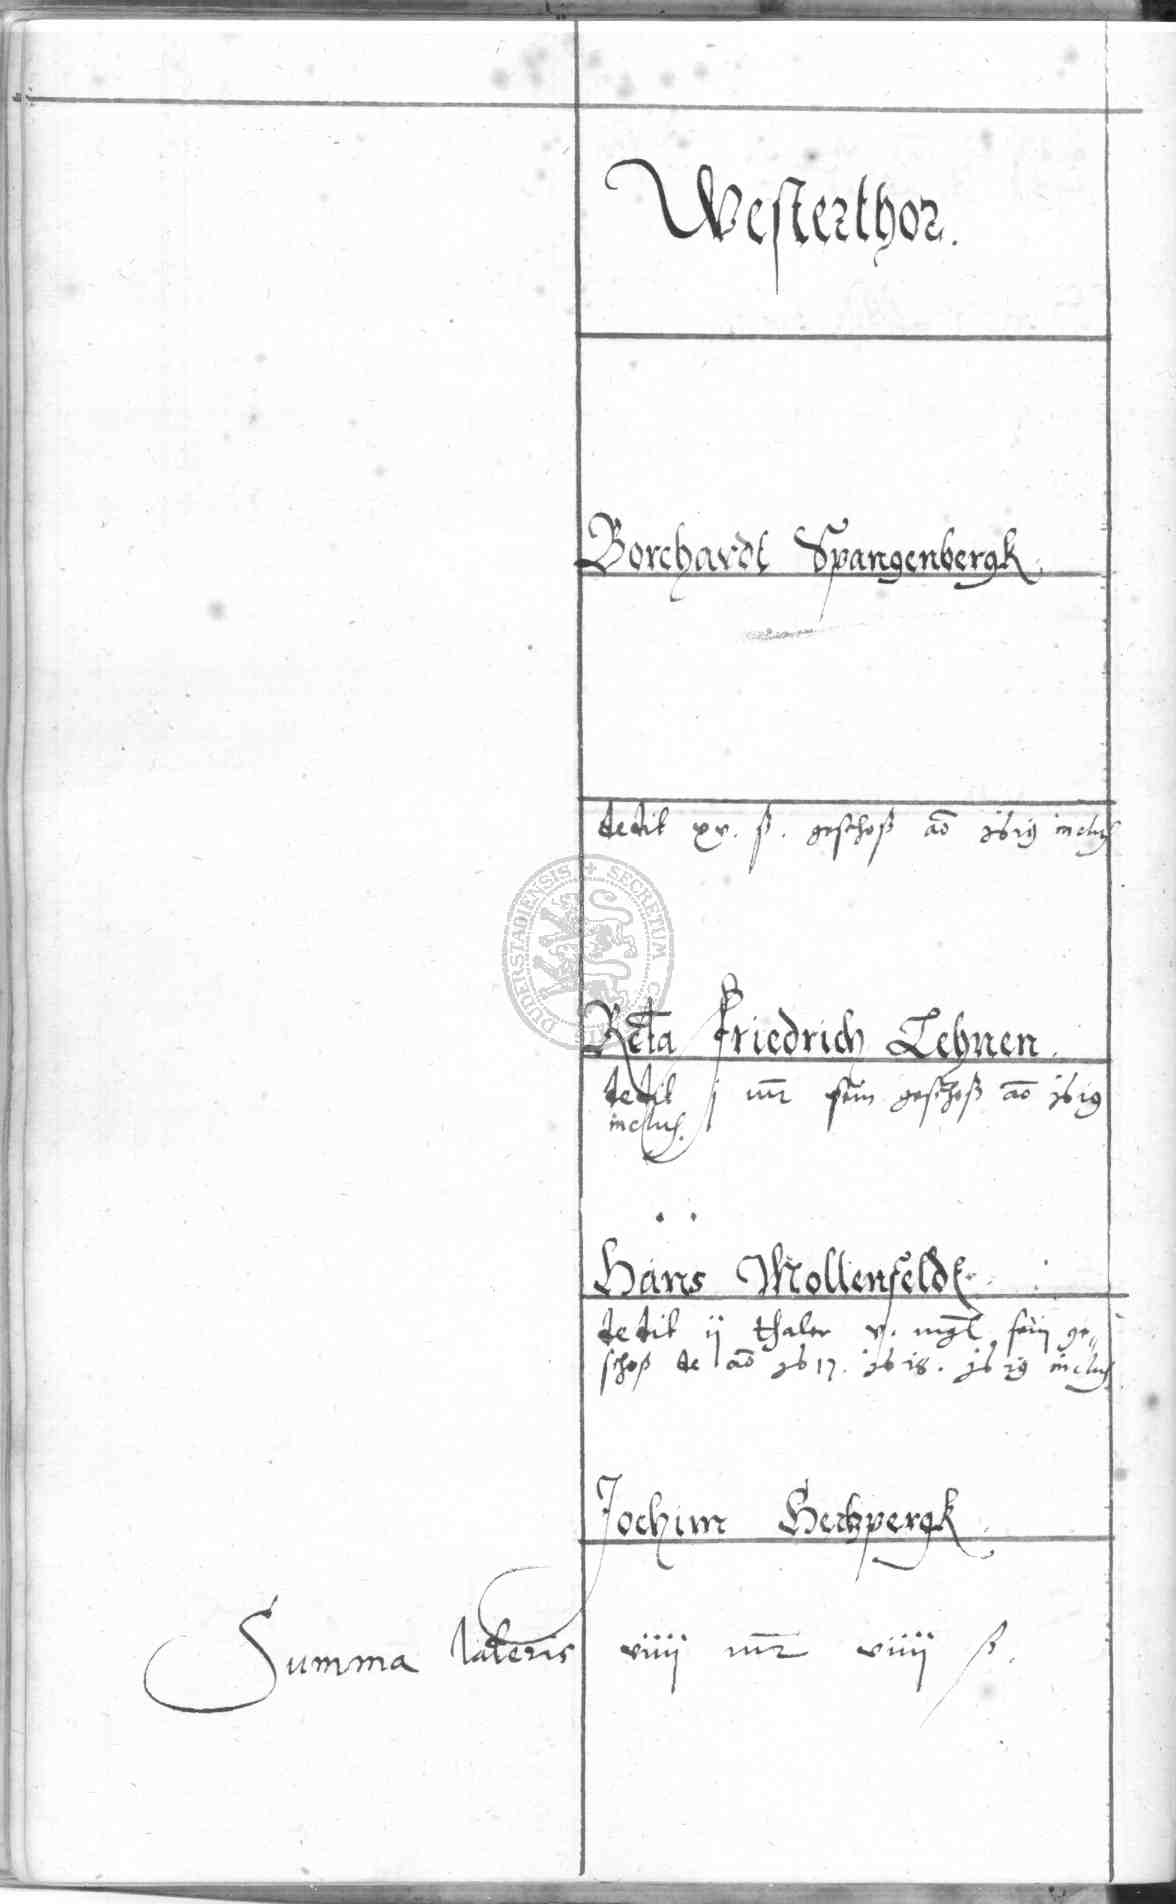 Westerthor.
Borchardt Spangenbergk
dedit xv. ß. geschoß aō 1619 inclus
DUDERSTADIENSIS + SECRETUM
Relta Friedrich Lehnen.
dedit j mr sein geschoß aō 1619
inclus.
Hans Mollenfeldt
dedit ij thaler v. mgl sein ge„
schoß de aō 1617. 1618. 1619 inclus
Jochim Hertzpergk
Summa lateris viiij mr viiij ß.